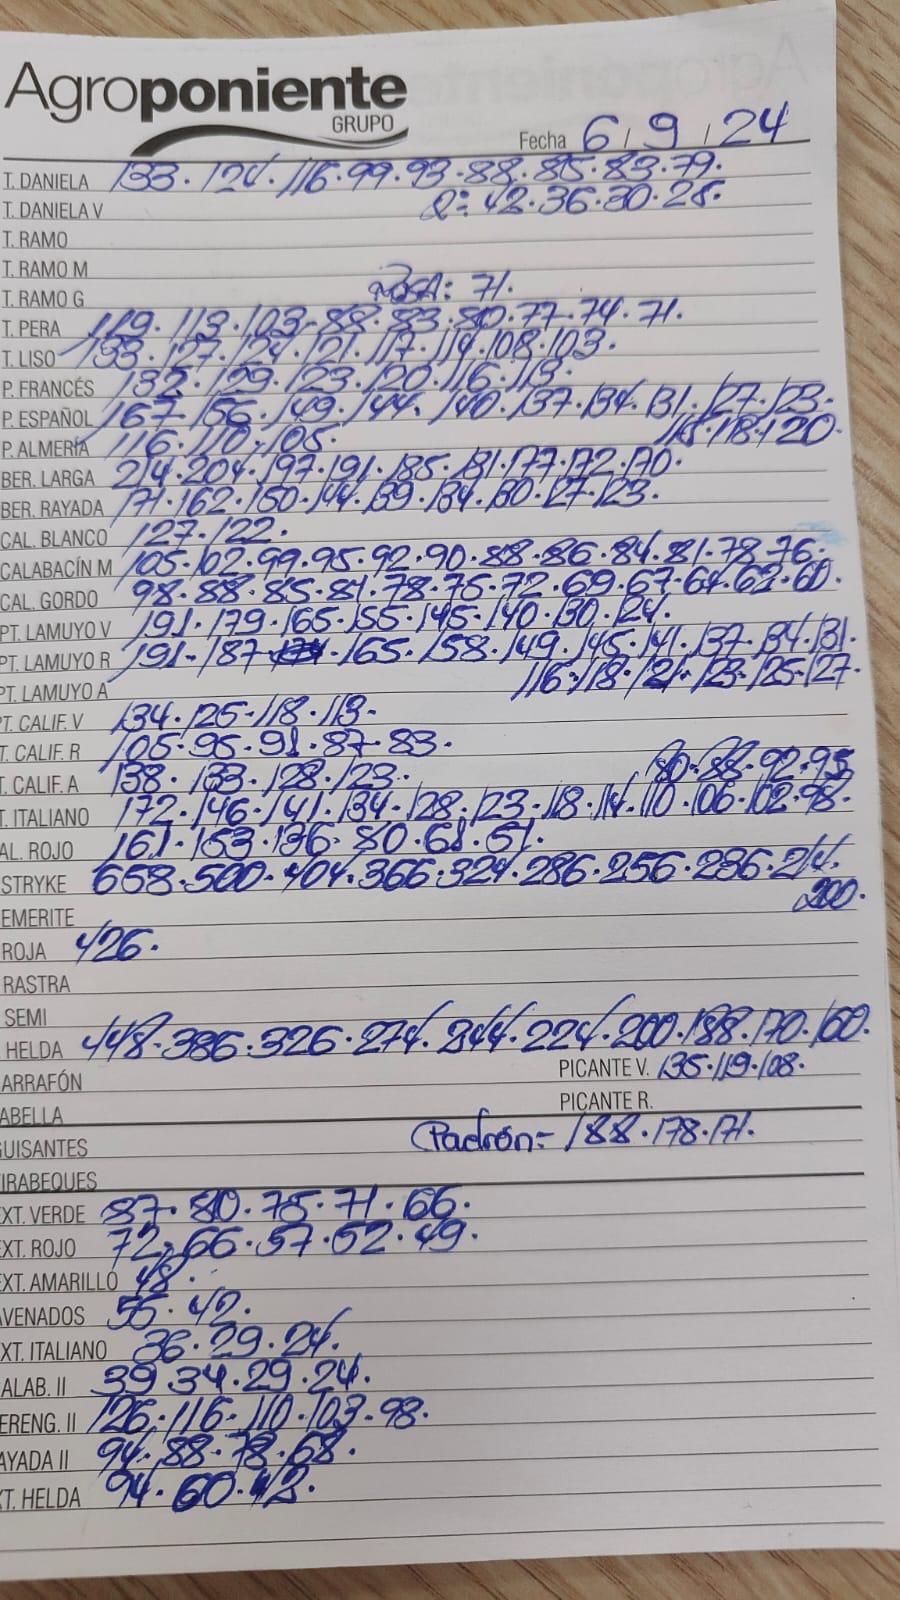 Agroponiente
GRUPO
Fecha 6/9/24
T. DANIELA 133. 124. 116. 99. 93. 88. 85. 83. 79.
T. DANIELA V 2ª: 42. 36. 30. 25.
T. RAMO
T. RAMO M
T. RAMO G ROSA: 71.
T. PERA 119. 113. 103. 88. 83. 80. 77. 74. 71.
T. LISO 133. 127. 124. 121. 117. 114. 108. 103.
P. FRANCÉS 132. 129. 123. 120. 116. 113.
P. ESPAÑOL 167. 156. 149. 144. 140. 137. 134. 131. 127. 123.
P. ALMERÍA 116. 110. 105. 115. 118. 120.
BER. LARGA 214. 204. 197. 191. 185. 181. 177. 172. 170.
BER. RAYADA 171. 162. 150. 144. 139. 134. 130. 127. 123.
CAL. BLANCO 127. 122.
CALABACÍN M 105. 102. 99. 95. 92. 90. 88. 86. 84. 81. 78. 76.
CAL. GORDO 98. 88. 85. 81. 78. 75. 72. 69. 67. 64. 62. 60.
PT. LAMUYO V 191. 179. 165. 155. 145. 140. 130. 124.
PT. LAMUYO R 191. 187. 165. 158. 149. 145. 141. 137. 134. 131.
PT. LAMUYO A 116. 118. 121. 123. 125. 127.
T. CALIF. V 134. 125. 118. 113.
T. CALIF. R 105. 95. 91. 87. 83.
T. CALIF. A 138. 133. 128. 123. 80. 88. 92. 95
T. ITALIANO 172. 146. 141. 134. 128. 123. 118. 114. 110. 106. 102. 98.
AL. ROJO 161. 153. 136. 80. 61. 51.
STRYKE 658. 500. 404. 366. 324. 286. 256. 236. 214.
200.
EMERITE
ROJA 426.
RASTRA
SEMI
HELDA 448. 386. 326. 274. 244. 224. 200. 188. 170. 160.
ARRAFÓN PICANTE V. 135. 119. 108.
ABELLA PICANTE R.
GUISANTES Padrón = 188. 178. 171.
TIRABEQUES
EXT. VERDE 87. 80. 75. 71. 66.
EXT. ROJO 72. 66. 57. 52. 49.
EXT. AMARILLO 48.
AVENADOS 55. 42.
XT. ITALIANO 36. 29. 24.
ALAB. II 39. 34. 29. 24.
ERENG. II 126. 116. 110. 103. 98.
AYADA II 94. 88. 78. 68.
XT. HELDA 94. 60. 42.